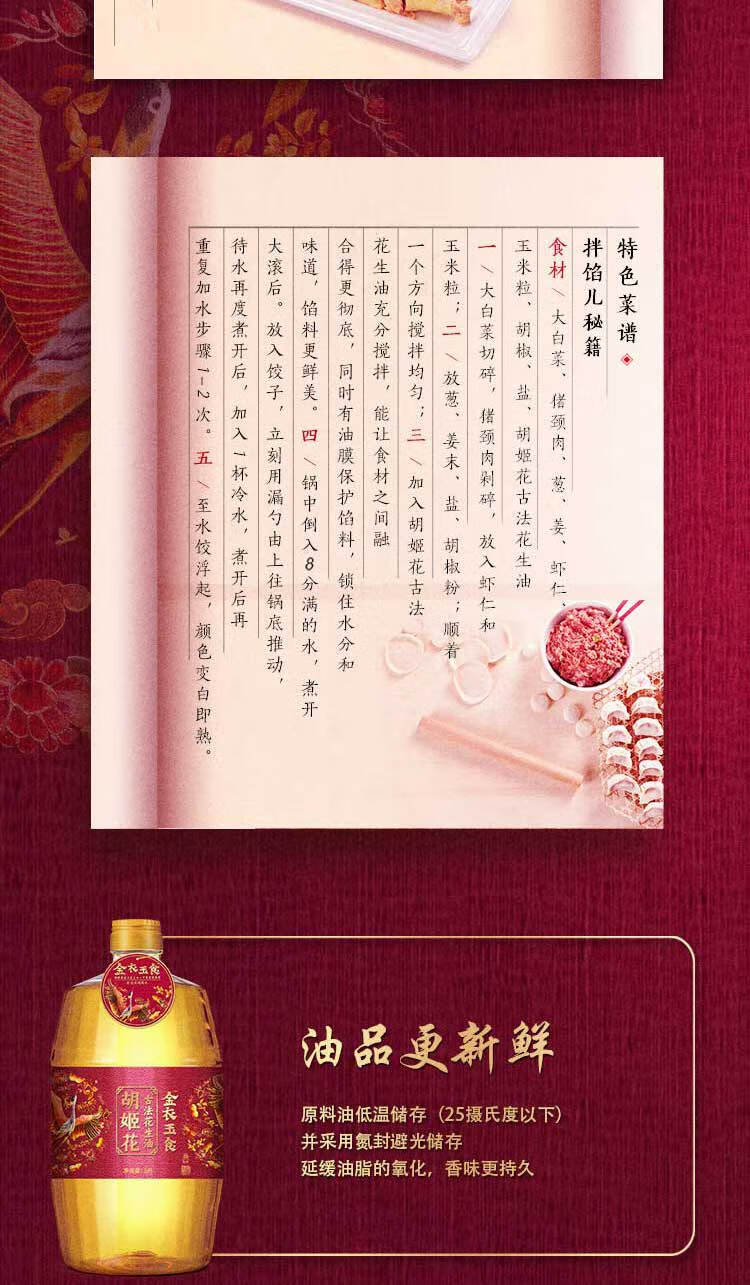 特色菜谱
拌馅儿秘籍
食材/大白菜、猪颈肉、葱、姜、虾仁、
玉米粒、胡椒、盐、胡姬花古法花生油
一/大白菜切碎，猪颈肉剁碎，放入虾仁和
玉米粒；二/放葱、姜末、盐、胡椒粉；顺着
一个方向搅拌均匀；三/加入胡姬花古法
花生油充分搅拌，能让食材之间融
合得更彻底，同时有油膜保护馅料，锁住水分和
味道，馅料更鲜美。四/锅中倒入8分满的水，煮开
大滚后。放入饺子，立刻用漏勺由上往锅底推动，
待水再度煮开后，加入1杯冷水，煮开后再
重复加水步骤1-2次。五/至水饺浮起，颜色变白即熟。
金衣玉食
金衣玉食
古法花生油
胡姬花
油品更新鲜
原料油低温储存（25摄氏度以下）
并采用氮封避光储存
延缓油脂的氧化，香味更持久